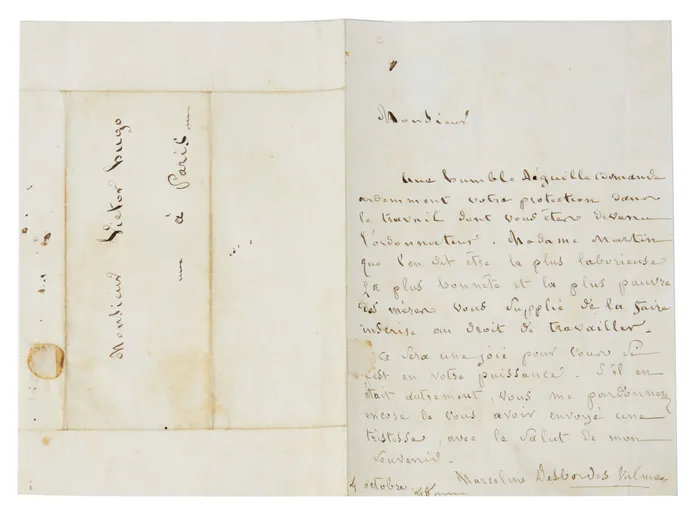 Monsieur Victor Hugo
à Paris
Monsieur
Une humble aiguille demande
ardemment votre protection dans
le travail dont vous êtes devenu
l'ordonnateur. Madame Martin
que l'on dit être la plus laborieuse
la plus honnête et la plus pauvre
des mères vous supplie de la faire
inscrire au droit de travailler.
Ce sera une joie pour vous si
c'est en votre puissance. S'il en
était autrement, vous me pardonnez
encore de vous avoir envoyé une
tristesse, avec le salut de mon
souvenir.
Marceline Desbordes Valmore
4 octobre